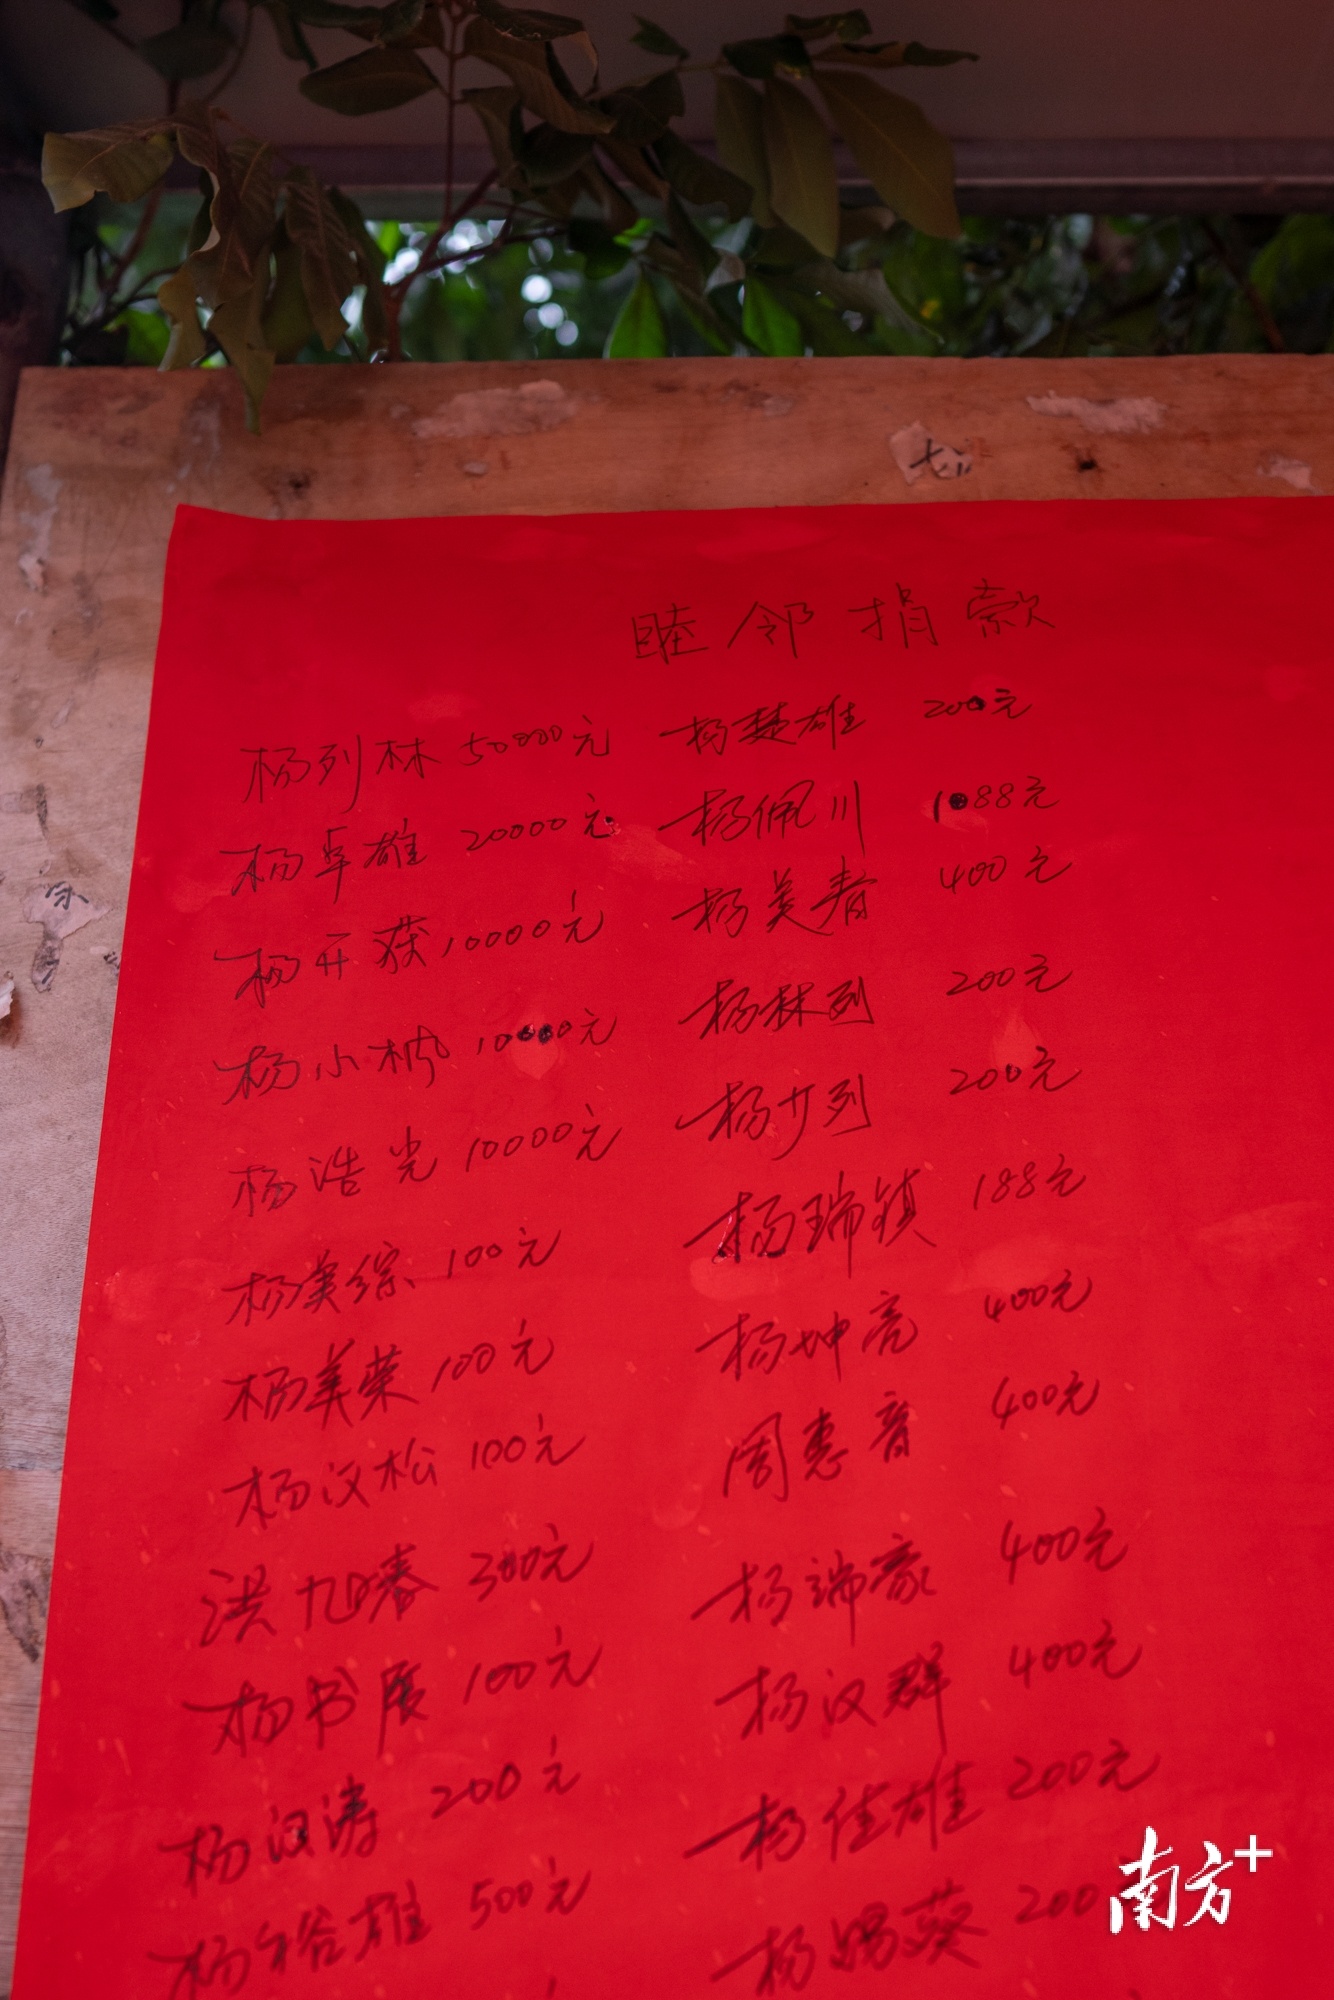 睦邻捐款
杨列林 50000元 杨楚雄 200元
杨卓雄 20000元 杨佩川 1088元
杨开荻 10000元 杨美春 400元
杨小枫 10000元 杨林列 200元
杨浩光 10000元 杨廿列 200元
杨美综 100元 杨瑞镇 188元
杨美荣 100元 杨坤亮 400元
杨汉松 100元 周惠音 400元
洪旭春 300元 杨端豪 400元
杨书展 100元 杨汉群 400元
杨汉涛 200元 杨佳雄 200元
杨裕雄 500元 杨葵 200
南方+